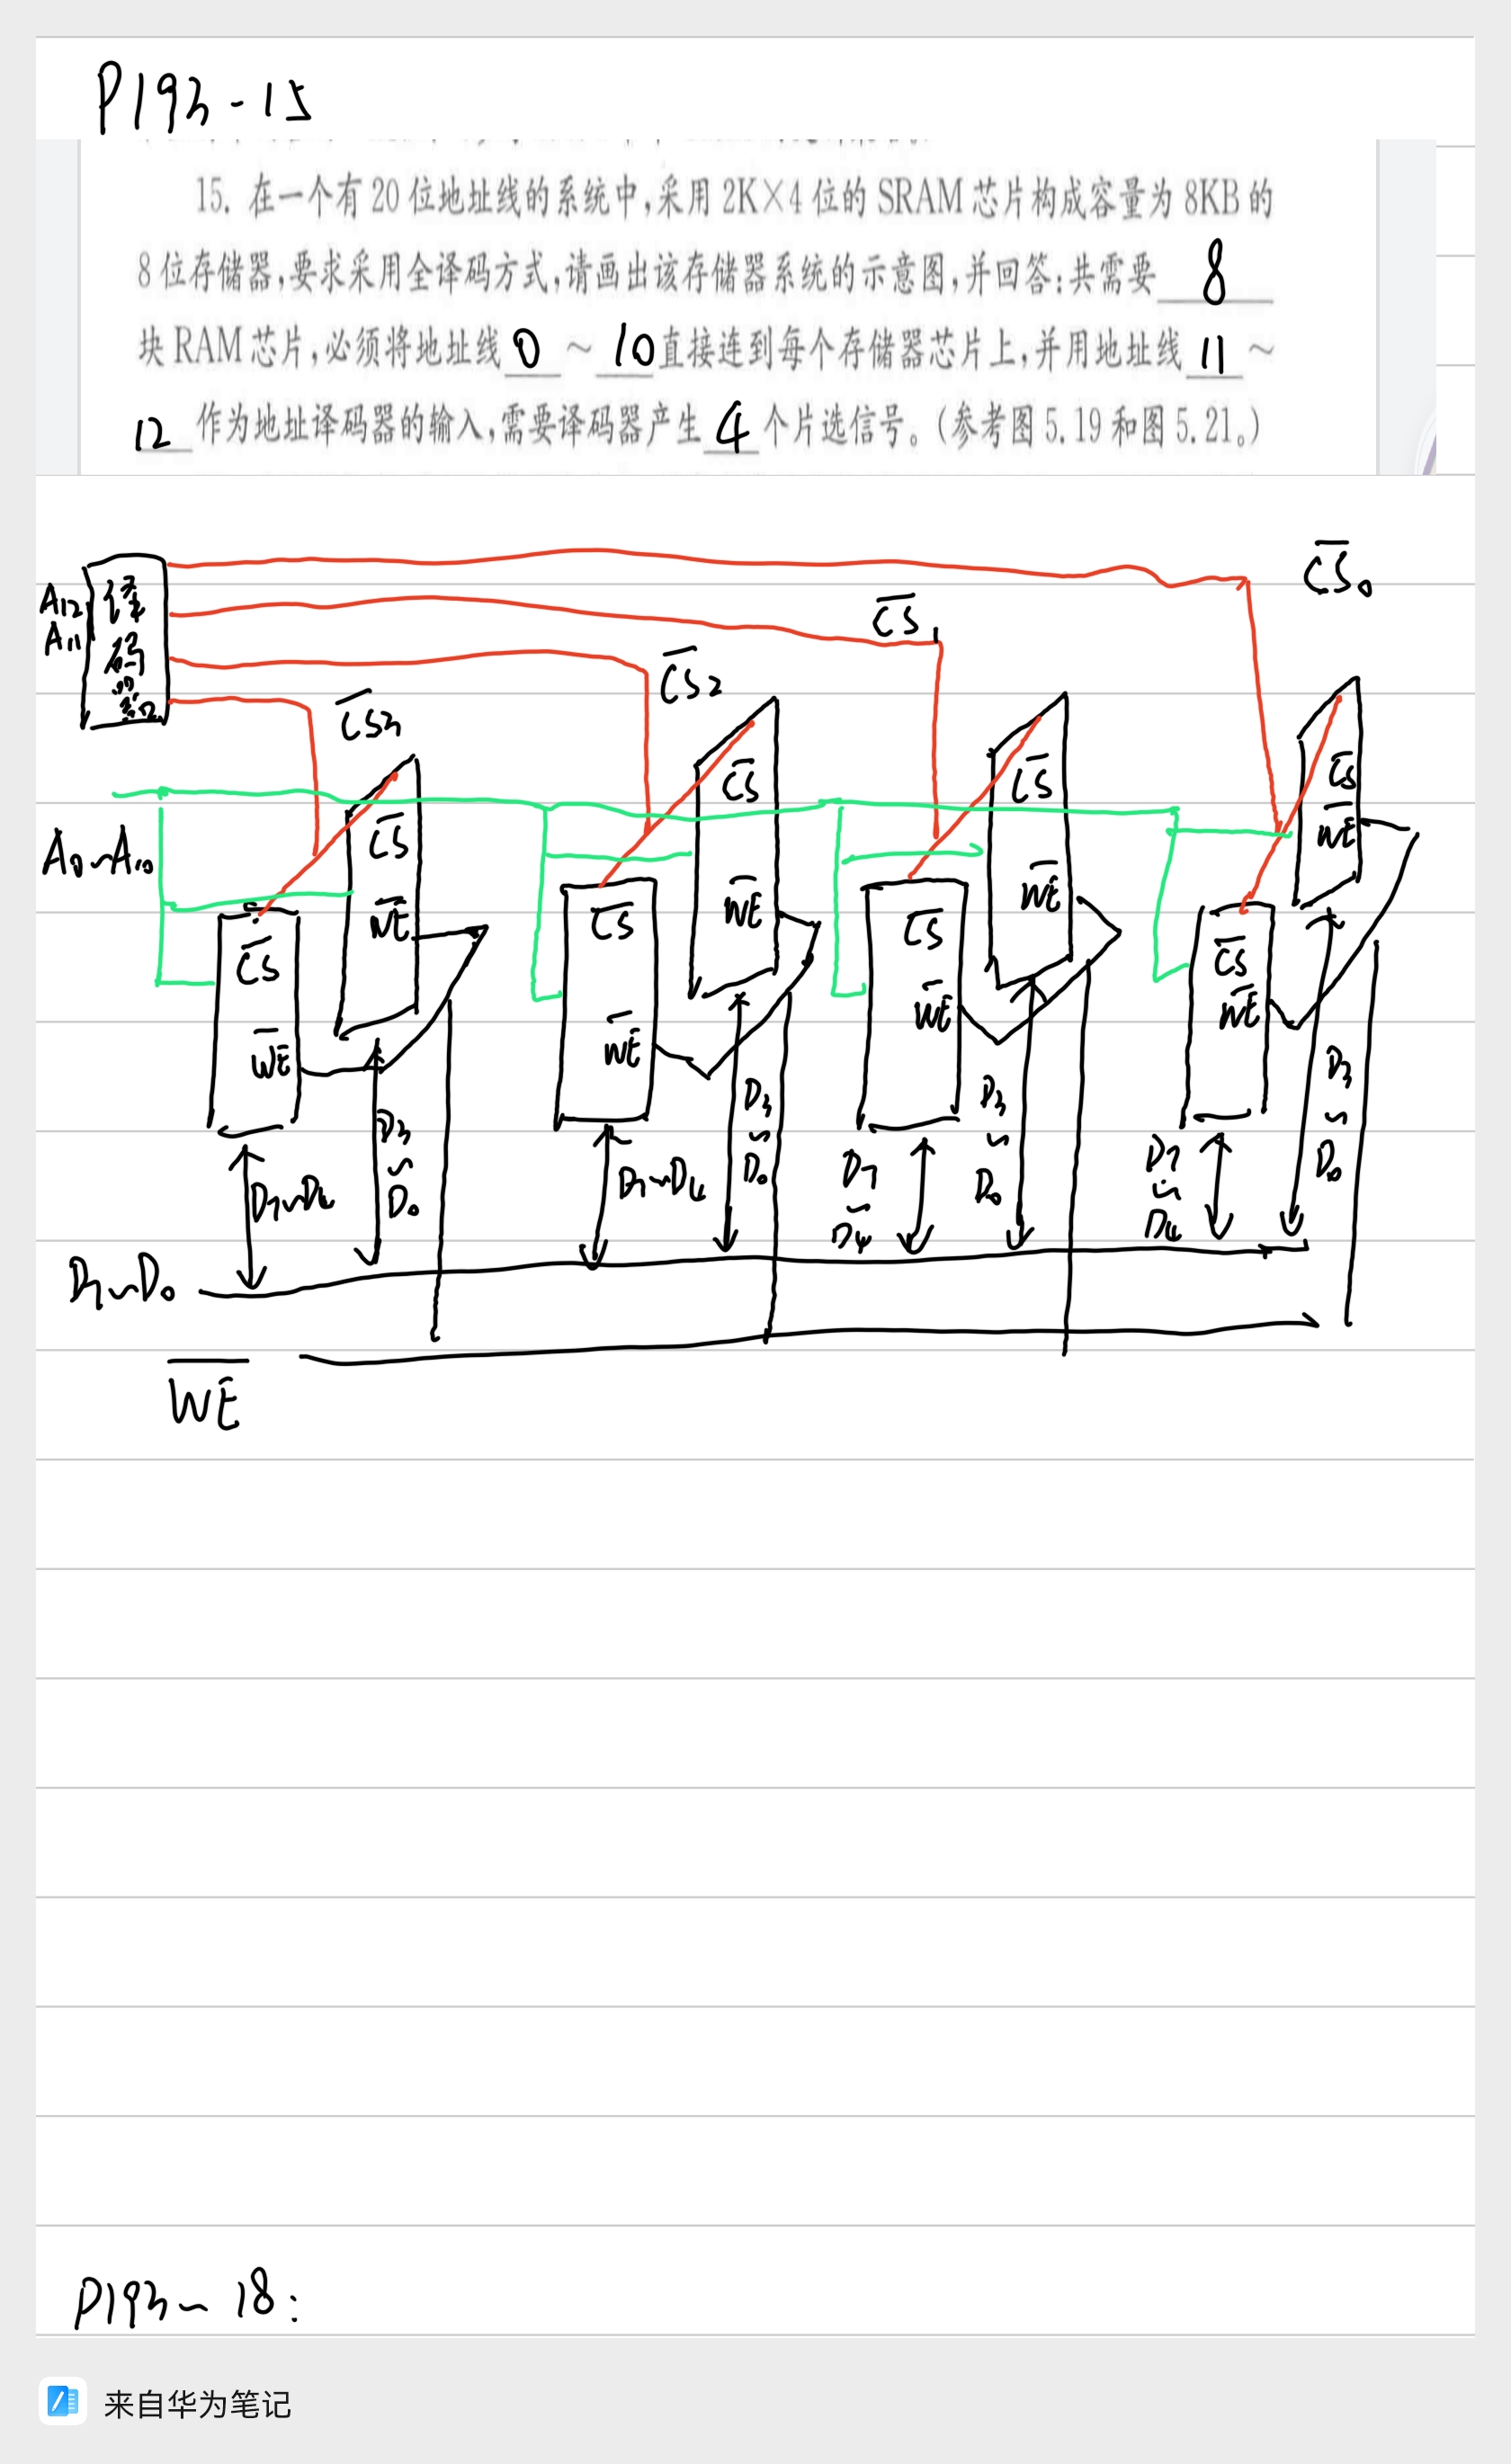 P193-15
15. 在一个有20位地址线的系统中,采用2K×4位的SRAM芯片构成容量为8KB的
8位存储器,要求采用全译码方式,请画出该存储器系统的示意图,并回答:共需要 8
块RAM芯片,必须将地址线 0 ~ 10 直接连到每个存储器芯片上,并用地址线 11 ~
12 作为地址译码器的输入,需要译码器产生 4 个片选信号。(参考图5.19和图5.21。)
A12
A11
译码器
C̅S̅₀
C̅S̅₁
C̅S̅₂
C̅S̅₃
A₀~A₁₀
C̅S̅
W̅E̅
C̅S̅
W̅E̅
C̅S̅
W̅E̅
C̅S̅
W̅E̅
C̅S̅
W̅E̅
C̅S̅
W̅E̅
C̅S̅
W̅E̅
C̅S̅
W̅E̅
D₇~D₄
D₃~D₀
D₇~D₄
D₃~D₀
D₇~D₄
D₃~D₀
D₇~D₄
D₃~D₀
D₇~D₀
W̅E̅
P193~18:
来自华为笔记